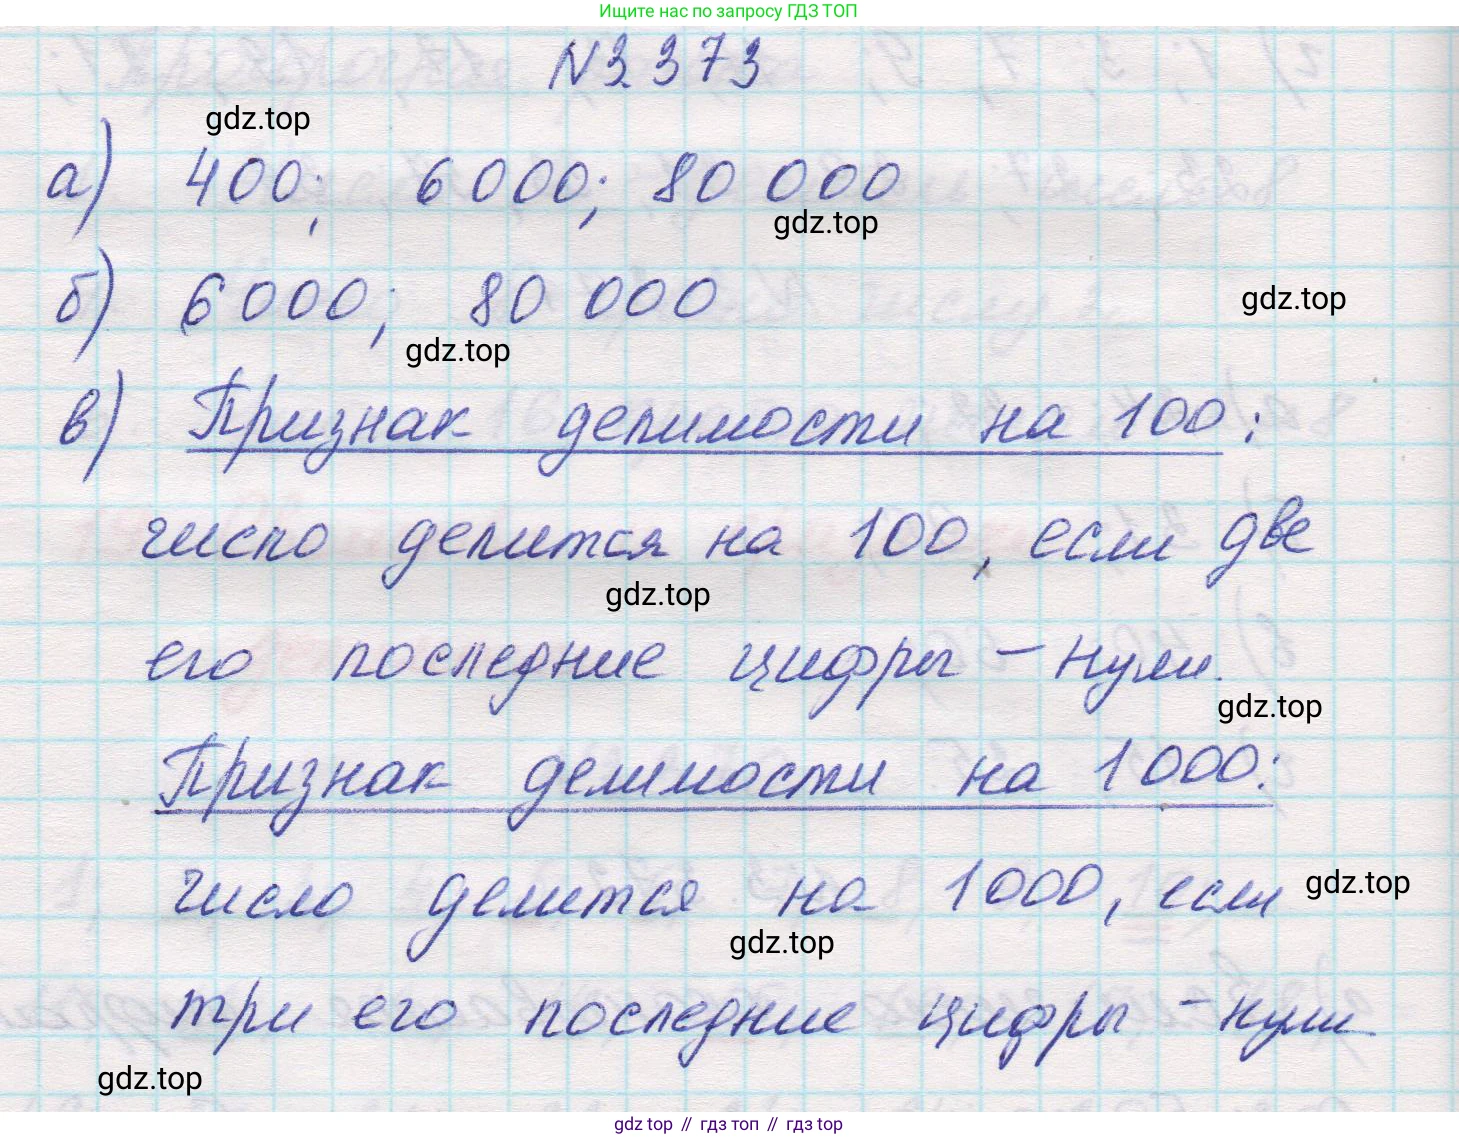 Ищите нас по запросу ГДЗ ТОП
N3 373
gdz.top
а) 400; 6000; 80 000
gdz.top
б) 6000; 80 000
gdz.top
gdz.top
в) Признак делимости на 100:
число делится на 100, если две
gdz.top
его последние цифры – нули.
gdz.top
Признак делимости на 1000:
число делится на 1000, если
gdz.top
gdz.top
три его последние цифры – нули
gdz.top
gdz top // гдз топ // гдз top